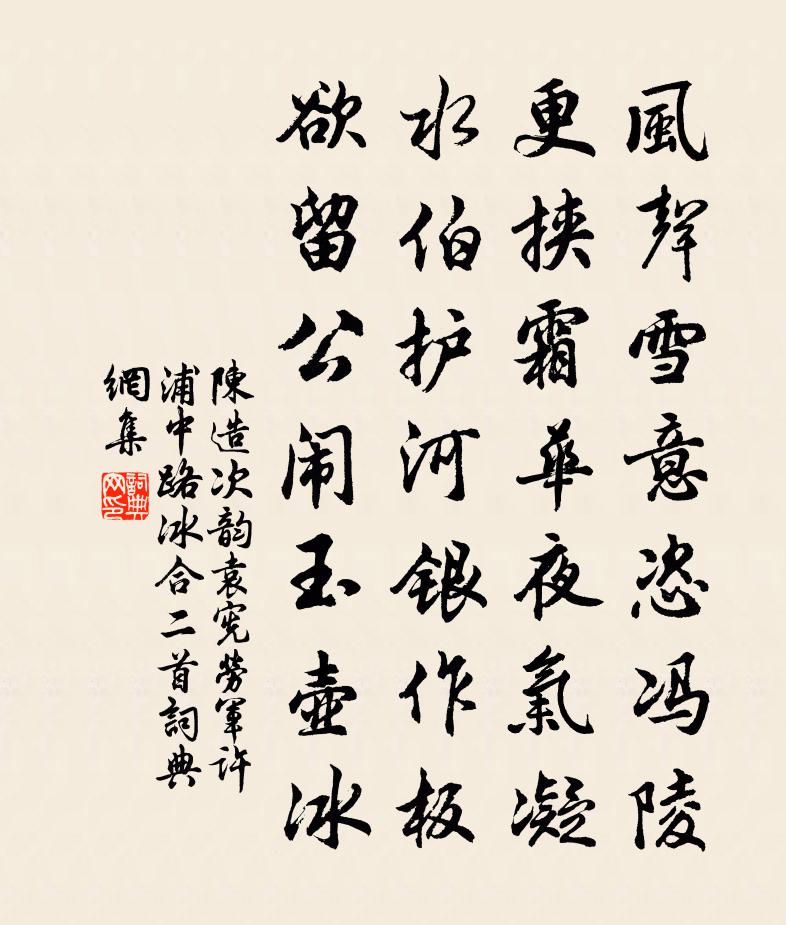 風聲雪意恣冯陵
更挟霜華夜氣凝
水伯护河银作板
欲留公闹玉壺冰
陳造次韵袁宪勞軍许
浦中路冰合二首詞典
網集
詞典网印